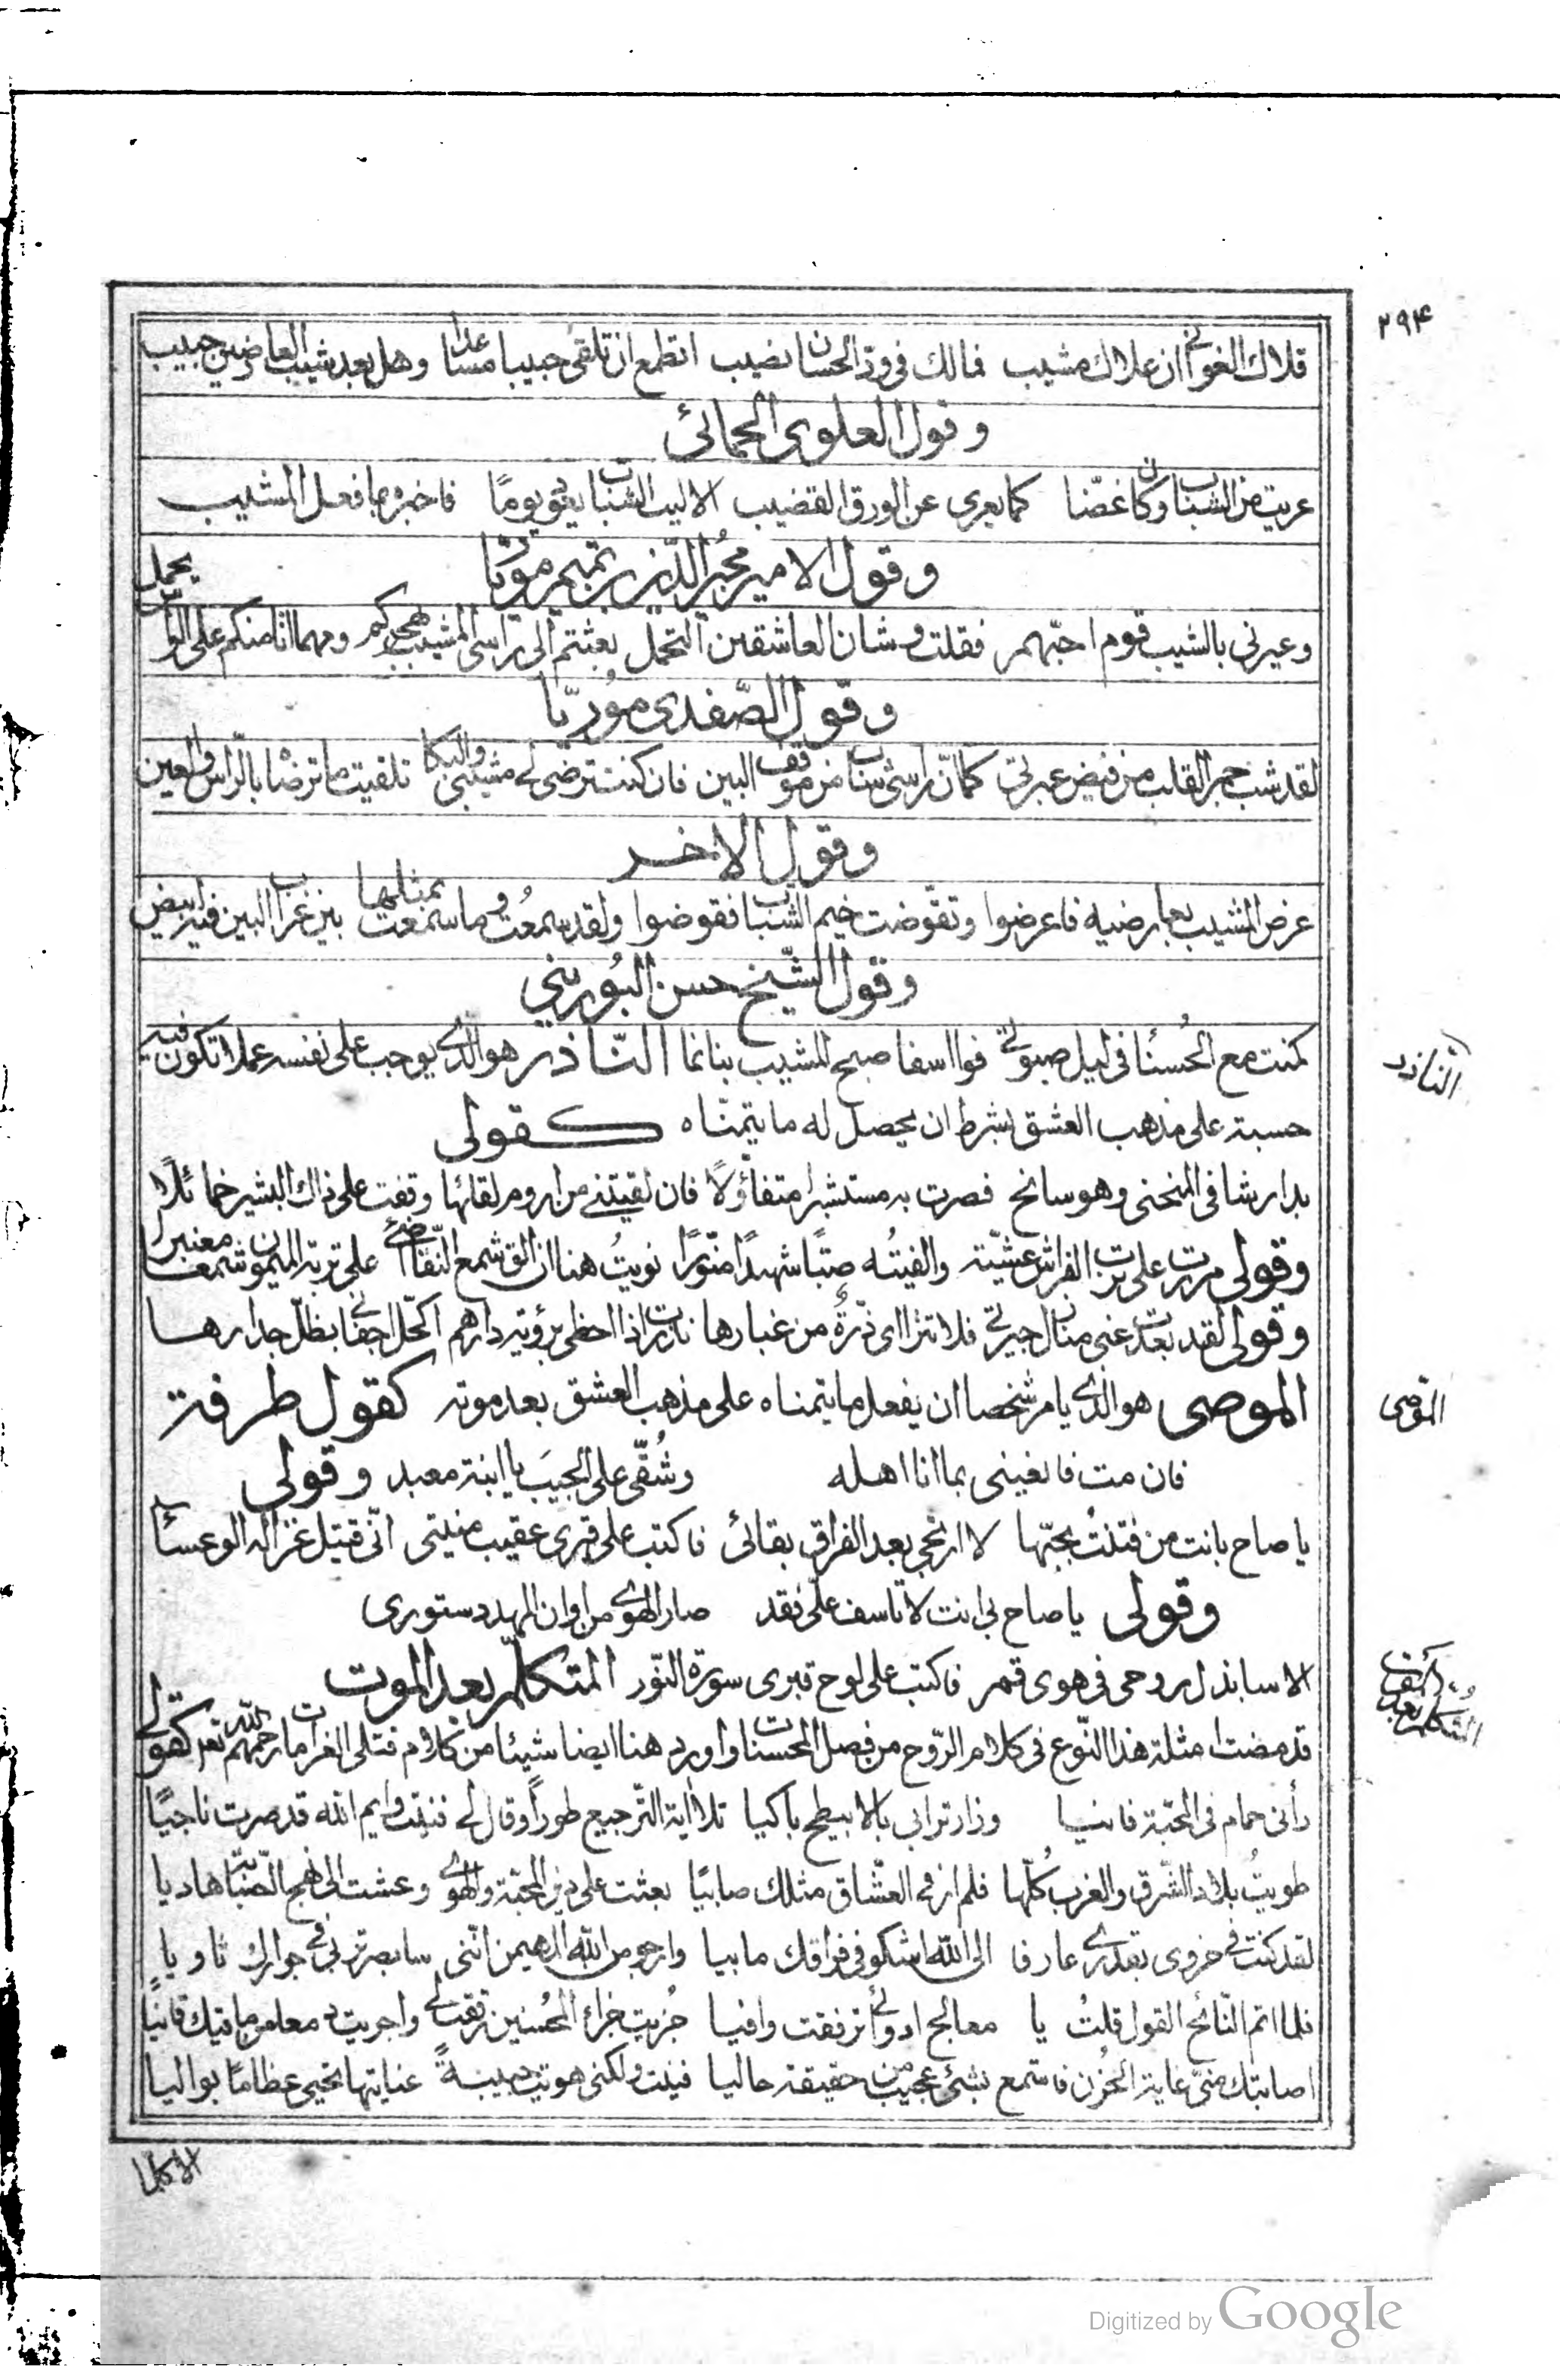 ٢٩٤
قلاك الغواني ان علاك مشيب فمالك في ود الحسان نصيب اتطمع ان تلقى حبيبا مساعدا وهل بعد شيب العارضين حبيب
وقول العلوى الحمانى
عريت من الشباب وكان غضّا كما يعرى عن الورق القضيب الا ليت الشباب يعود يومًا فاخبره بما فعل المشيب
وقول الامير مجير الدّين بن تميم مورّيا
وعيرنى بالشيب قوم احبّهم فقلت وشان العاشقين التجمل بعثتم الى راسى المشيب بهجركم ومهما اتا منكم على الراس يحمل
وقول الصّفدى مُورّيا
لقد شب جمر القلب من فيض عبرتى كما انّ راسى شاب من موقف البين فان كنت ترضى لى مشيبى والبكا تلقيت ما ترضاه بالرّاس والعين
وقول الاخر
عرض المشيب بعارضيه فاعرضوا وتقوّضت خيم الشباب فقوضوا ولقد سمعُت وما سمعت بمثلها بين غراب البين فيه ابيض
وقول الشّيخ حسن البُورينى
كنت مع الحُسنا فى ليل صبوتى فوا اسفا صبح المشيب بنا نما النّاذر هو الذى يوجب على نفسه عملا تكون فيه
النّاذر
حسبة على مذهب العشق بشرط ان يحصل له ما يتمنّاه كقولى
بدا رشا فى المنحنى وهو سانح فصرت به مستبشرا متفاؤلًا فان لقيتنى من اروم لقائها وقفت على ذاك البشير خمائلًا
وقولى مررت على ترب الفراش عشيّة والفيتُه صبًّا شهيدًا منّورًا نويتُ هنا ان الق شمع النقا ضحى على تربة الميمون شمعا معنبرا
وقولى لقد بعدت عنى منازل جيرتى فلا تنرااى ذرّةً من غبارها نذرت اذا احظى برؤية دارهم اكحّل اجفانى بظلّ جدارها
الموصى هو الذى يامر شخصا ان يفعل ما يتمناه على مذهب العشق بعد موته كقول طرفة
الموصى
فان مت فانعينى بما انا اهله وشُقّى علىّ الجيَب يا ابنة معبد وقولى
يا صاح بانت من فتنتُ بحبّها لا ارتجى بعد الفراق بقائى فاكتب على قبرى عقيب منيتى انّى قتيل غزالة الوعسا
وقولى يا صاح بى انت لا تاسف علىّ فقد صار الهوى من اوان المهد دستورى
الا سابذل روحى فى هوى قمر فاكتب على لوح قبرى سورة النّور المتكلّم بعد الموت
المتكلم بعد الموت
قد مضت امثلة هذا النّوع فى كلام الرّوح من فصل المحسنات واورد هنا ايضا شيئا من كلام قتلى الغرام رحمهم الله تعم كقولى
رأنى حمام فى المحبّة فانيا وزار ترابى بالابيطح باكيا تلا اية الترجيع طورًا وقال لى فنيت وايم الله قد صرت ناجيًا
طويتُ بلاد الشّرق والغرب كُلّها فلم ار فى العشّاق مثلك صابيًا بعثت على دين المحبّة والهوى وعشت الى نهج الصّبابة هاديا
لقد كنت فى حزوى بقدرى عارفا الى الله اشكو فى فراقك ما بيا وارجو من الله المهيمن انّنى سابصر تربى فى جوارك ثاويا
فلما اتم النّائح القول قلتُ يا معالج ادوائى ترفقت وافيا جُزيت جزاء المُحسنين ترقت لى واجريت دمعا من ماقيك قانيًا
اصابتك منّى غاية الحُزن فاستمع بشئ عجيب من حقيقة حاليا فنيت ولكنى هويت حبيبةً عنايتها تحيى عظامًا بواليا
الا كلما
Digitized by Google